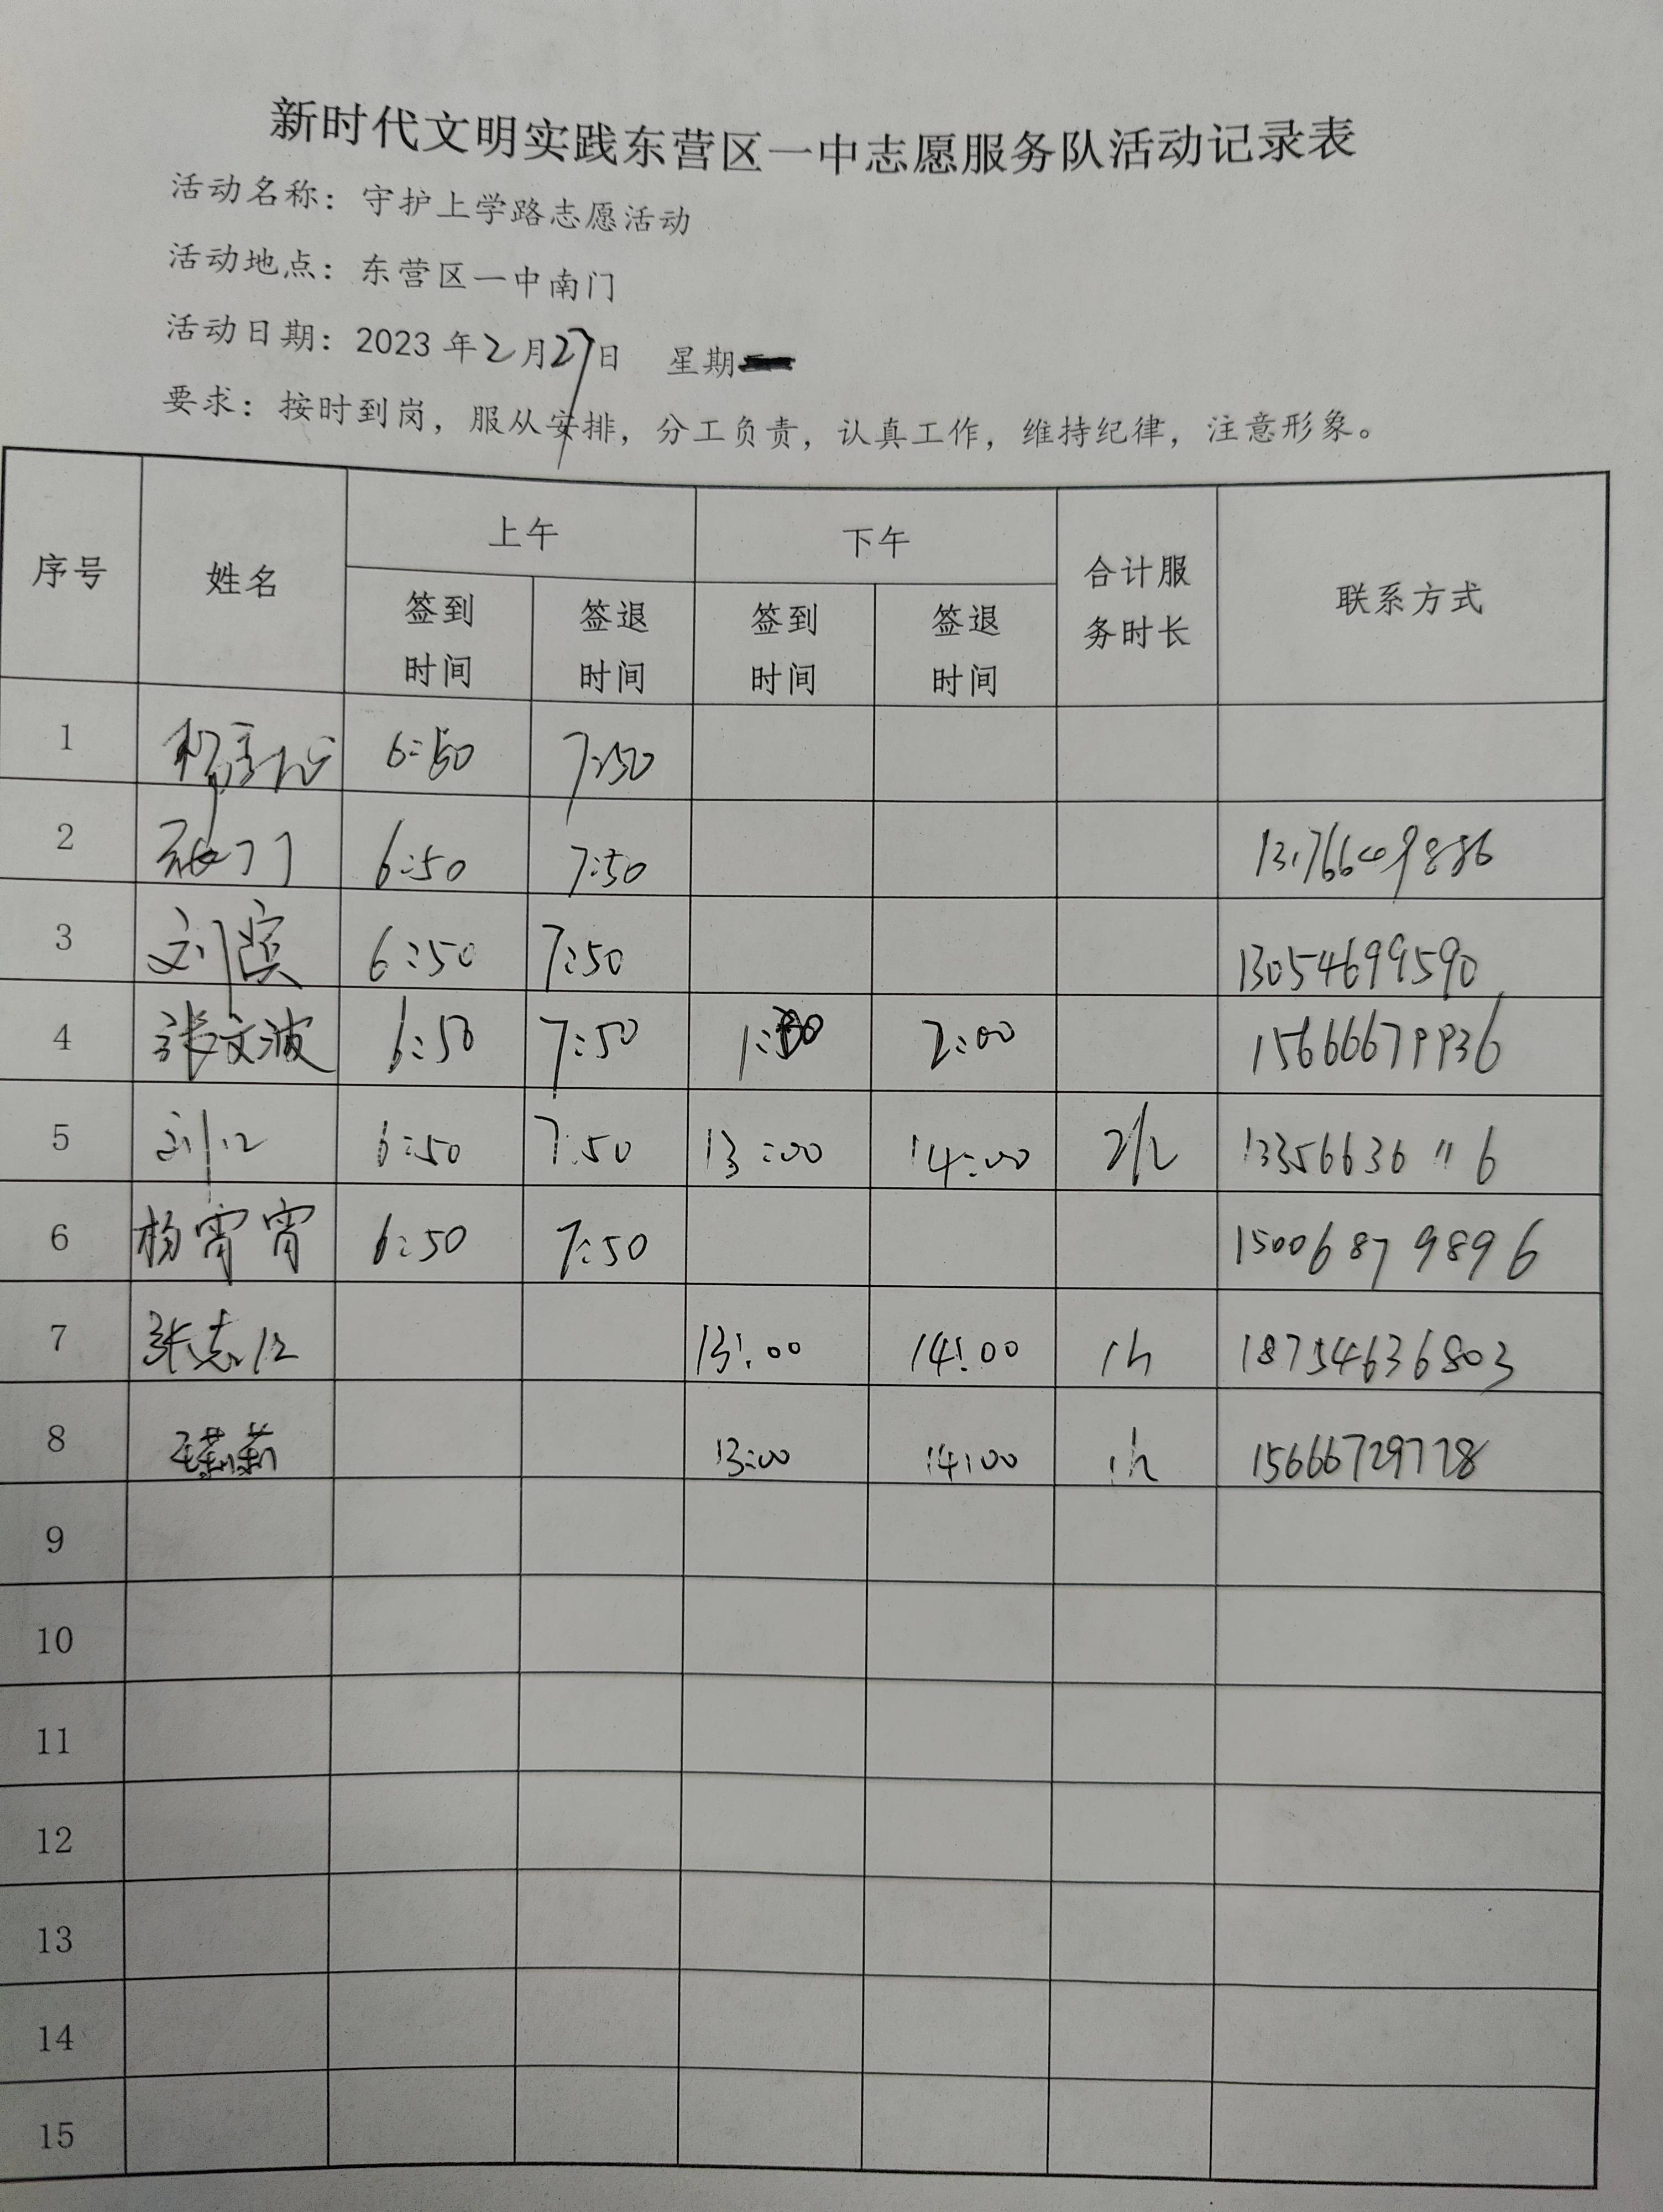 新时代文明实践东营区一中志愿服务队活动记录表
活动名称：守护上学路志愿活动
活动地点：东营区一中南门
活动日期：2023年2月27日 星期一
要求：按时到岗，服从安排，分工负责，认真工作，维持纪律，注意形象。
序号 姓名 上午 下午 合计服务时长 联系方式
签到时间 签退时间 签到时间 签退时间
1 6:50 7:50
2 6:50 7:50 13176649886
3 刘滨 6:50 7:50 13054699590
4 张文波 6:50 7:50 1:00 2:00 15666679936
5 刘江 6:50 7:50 13:00 14:00 2h 13356636116
6 杨霄霄 6:50 7:50 15006879896
7 张志江 13:00 14:00 1h 18754636803
8 王莉莉 13:00 14:00 1h 15666729728
9
10
11
12
13
14
15